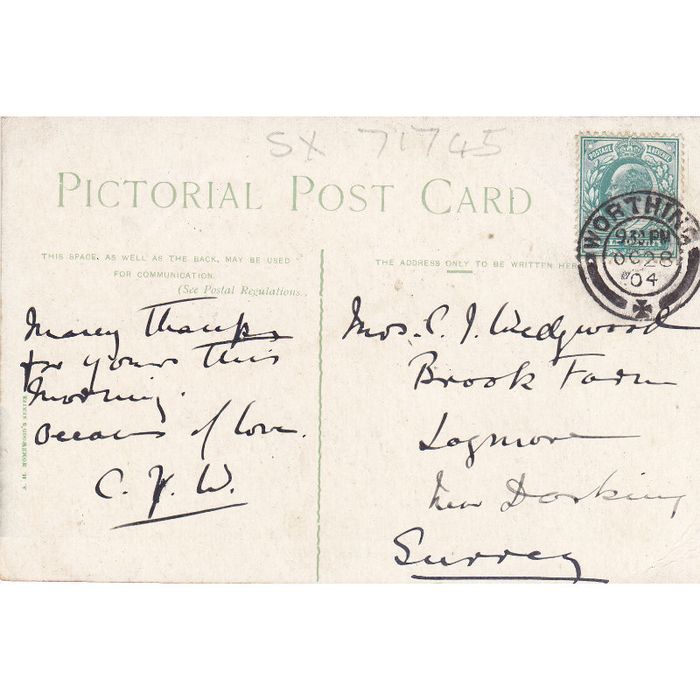 SX 71745
PICTORIAL POST CARD
POSTAGE REVENUE
WORTHING
9 PM
OC 28
04
THIS SPACE, AS WELL AS THE BACK, MAY BE USED
FOR COMMUNICATION.
(See Postal Regulations.)
Many thanks
for yours this
Morning.
Oceans of love.
C. F. W.
THE ADDRESS ONLY TO BE WRITTEN HERE
Mrs. C. J. Wedgwood
Brook Farm
Logmore
Near Dorking
Surrey